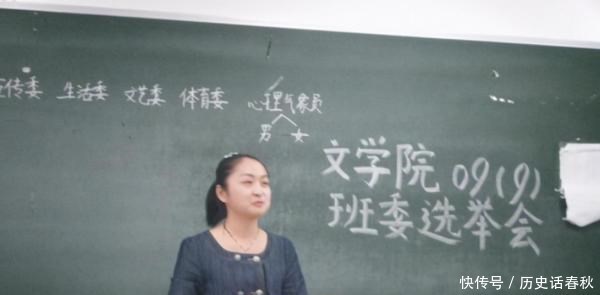 宣传委 生活委 文艺委 体育委 心理气象员
男 女
文学院 09(9)
班委选举会
快传号 / 历史话春秋